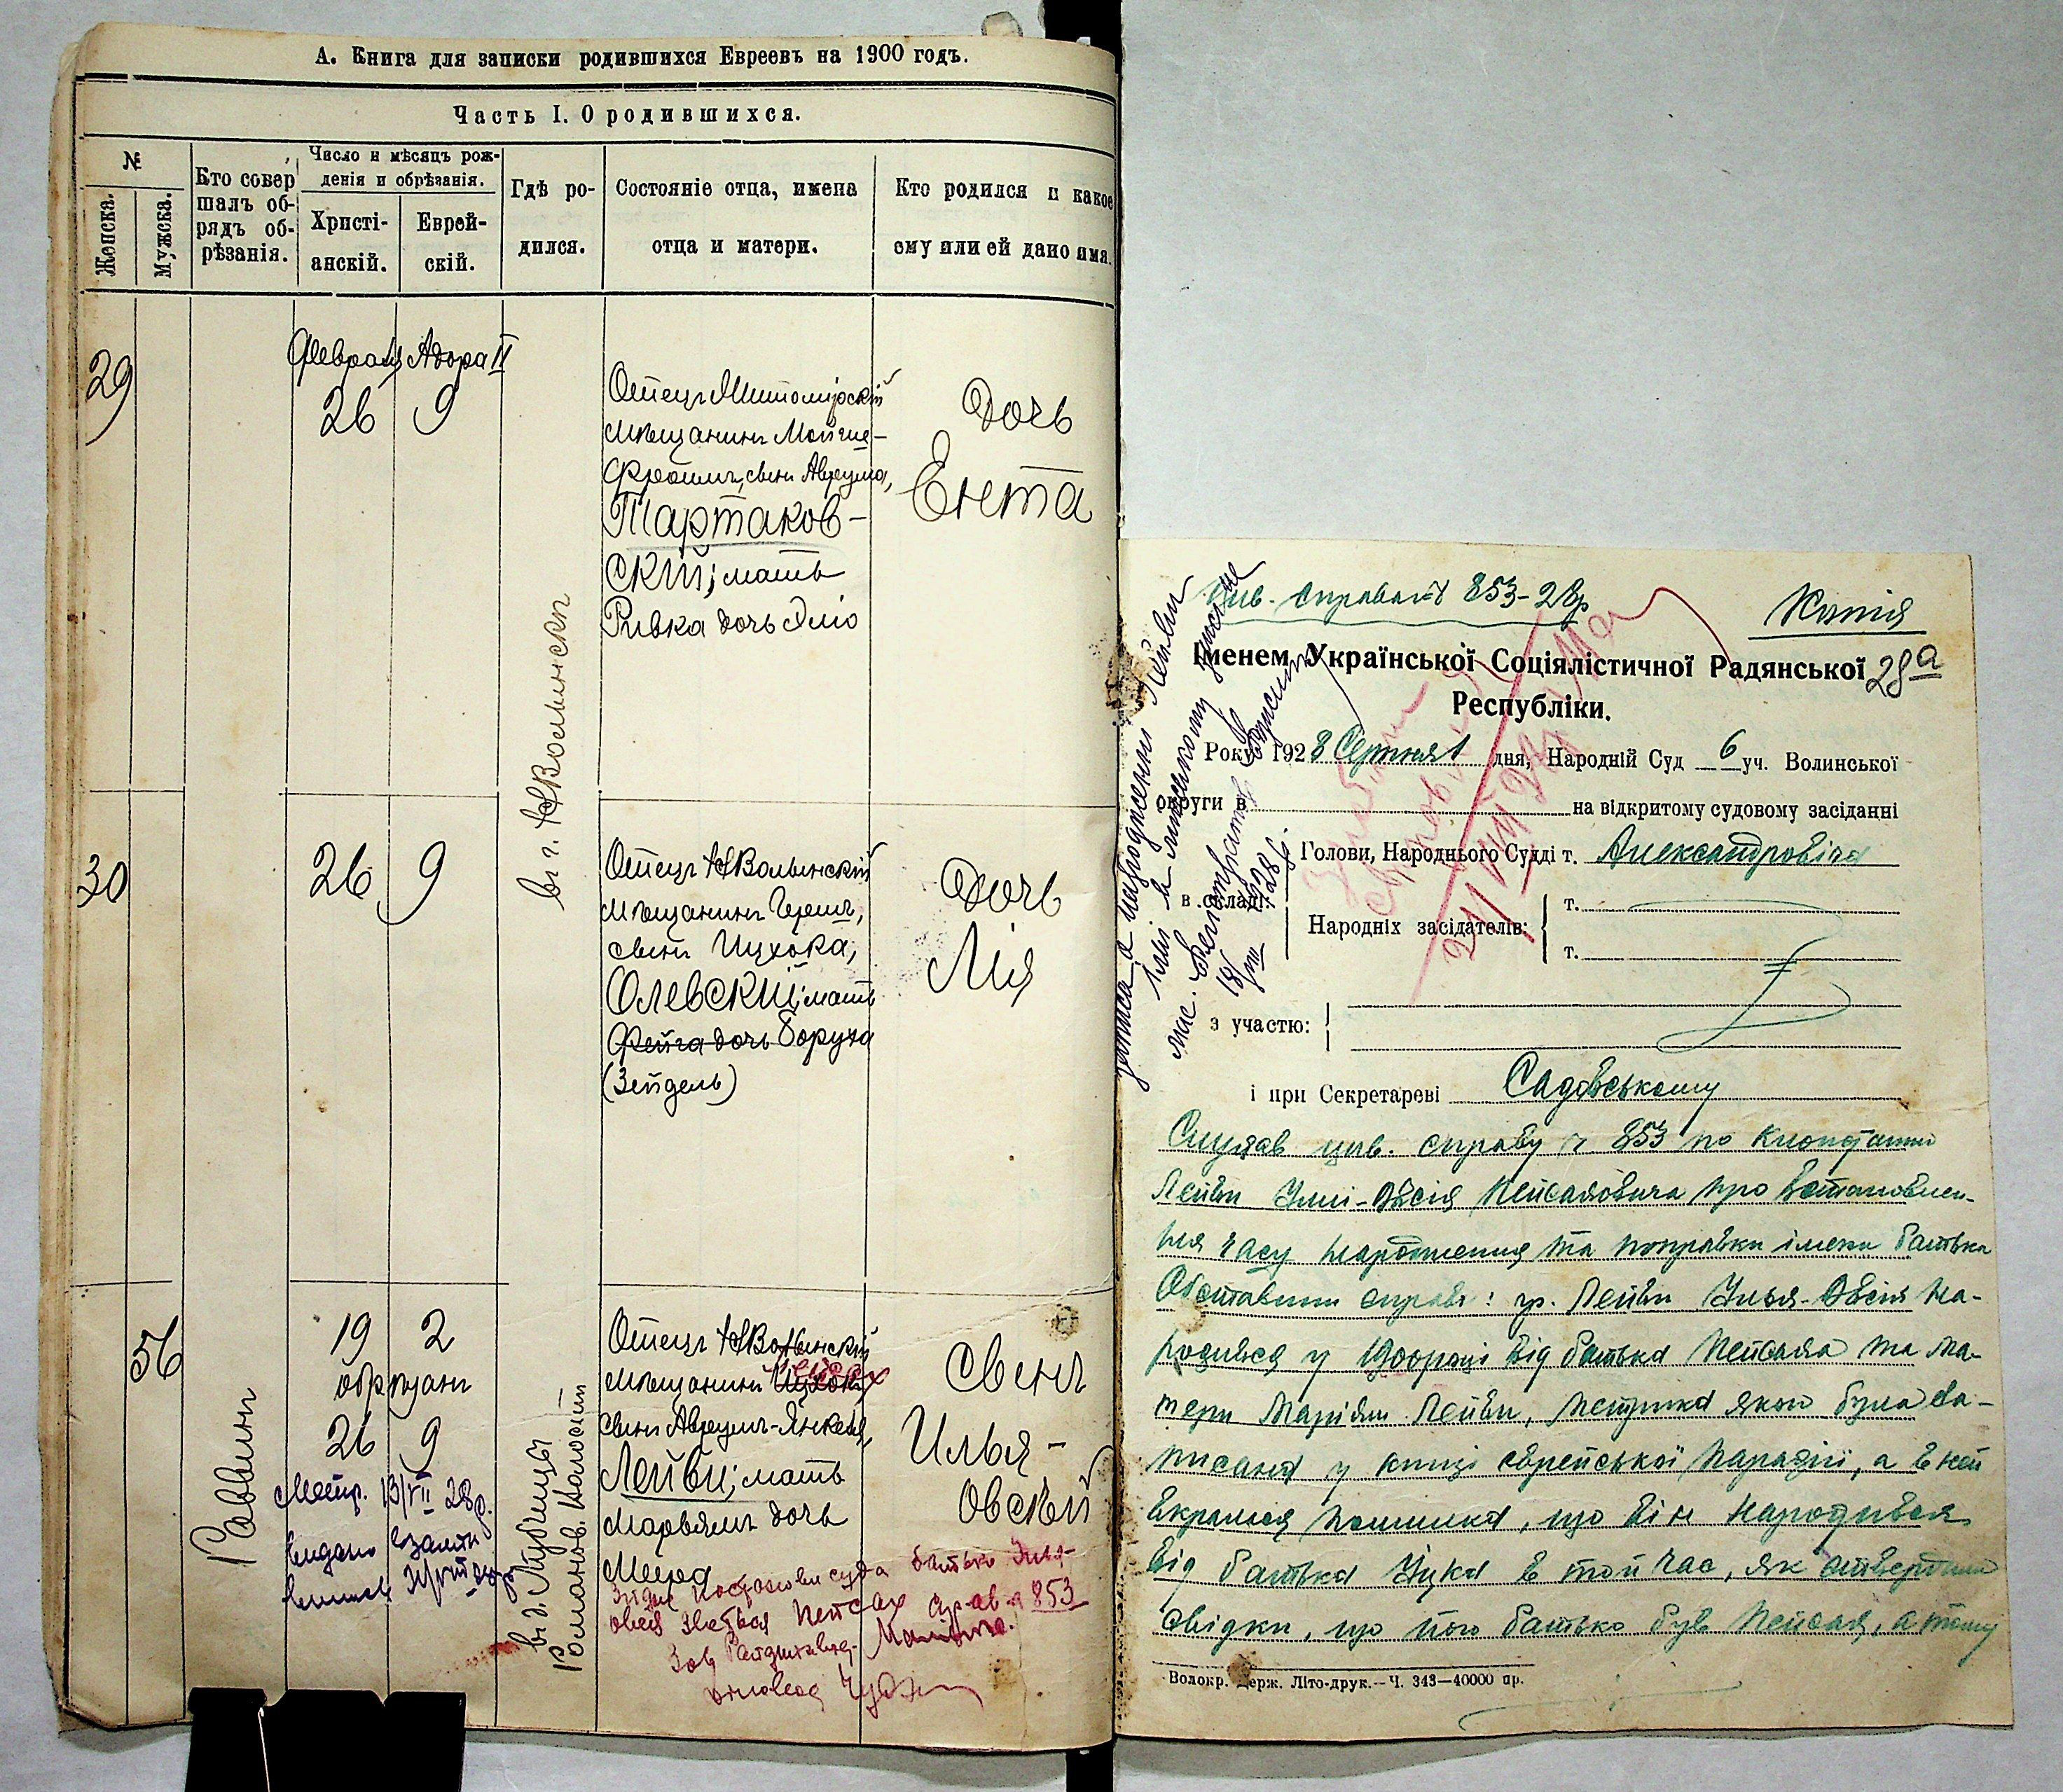 А. Книга для записки родившихся Евреевъ на 1900 годъ.
Часть I. О родившихся.
№
Женска.
Мужеска.
Кто совер
шалъ об-
рядъ об-
рѣзанія.
Число и мѣсяцъ рож-
денія и обрѣзанія.
Христі-
анскій.
Еврей-
скій.
Гдѣ ро-
дился.
Состояніе отца, имена
отца и матери.
Кто родился и какое
ему или ей дано имя.
29
Февраля Адора II
26 9
въ г. НВолынскѣ
Отецъ Житомірскій
мѣщанинъ Мойше-
Фроимъ, сынъ Аврума,
Тартаков-
скій; мать
Ривка дочь Эліо
Дочь
Ента
30
26 9
Отецъ НВолынскій
мѣщанинъ Гершъ,
сынъ Ицхока,
Олевскій; мать
Фейга дочь Боруха
(Зейдель)
Дочь
Лія
56
Раввинъ
19 2
обрѣзанъ
26 9
Метр. 13/VII 28р.
видано
въ д. Тубельцы
Романов. Волости
Отецъ НВолынскій
мѣщанинъ Ицхокъ
Пейсах
сынъ Аврумъ-Янкеля,
Лейви; мать
Марьямъ дочь
Меера
Сынъ
Илья-
Овсѣй
Згідно постанови суда батько Ілля-
Овсія звеся Пейсах справа 853
діловод
Цив. справа № 853-28р
Копія
28а
Іменем Української Соціялістичної Радянської
Республіки.
Року 1928 Серпня 1 дня, Народній Суд 6 уч. Волинської
округи в на відкритому судовому засіданні
Голови, Народнього Судді т. Александровіча
в складі:
Народніх засідателів: т.
т.
з участю:
18/VIII 1928 р.
і при Секретареві Садовському
Слухав цив. справу № 853 по клопотанні
Лейви Іллі-Овсія Пейсаховича про встановлен-
ня часу народження та поправки імени батька
Обставини справи: гр. Лейви Ілья-Овсій на-
родився у від батька Пейсаха та ма-
тери Маріям Лейви, метрика якого була за-
писана у книзі єврейської парафії, а в ній
вкралася помилка, що він народився
від батька Іцка в той час, як ствердили
свідки, що його батько був Пейсах, а тому
Волокр. Держ. Літо-друк.— Ч. 343—40000 пр.